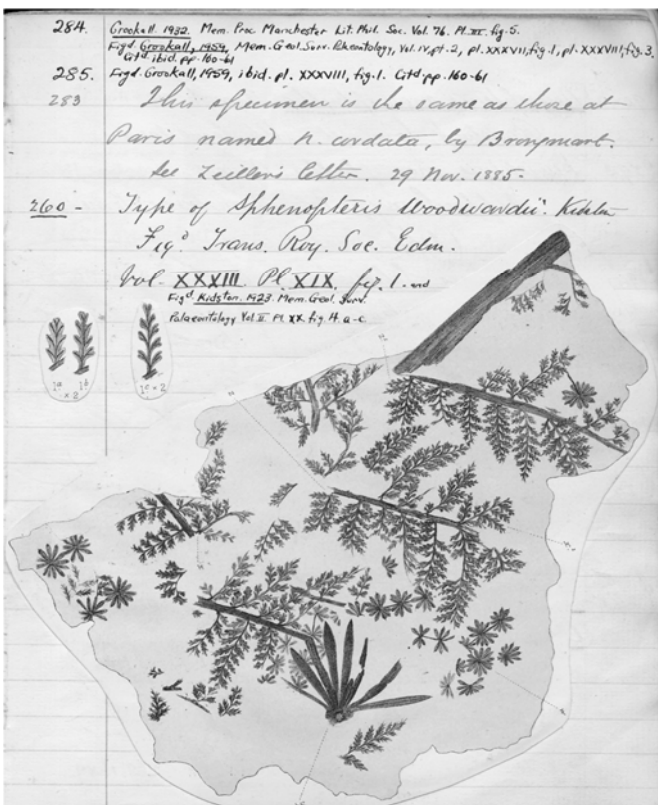 284. Crookall. 1932. Mem. Proc Manchester Lit. Phil. Soc. Vol. 76. Pl. III. fig. 5.
Figd. Crookall, 1959, Mem. Geol. Surv. Palaeontology, Vol. IV, pt. 2, pl. XXXVII, fig. 1, pl. XXXVIII, fig. 3.
Citd. ibid. pp. 160-61
285. Figd. Crookall, 1959, ibid. pl. XXXVIII, fig. 1. Citd. pp. 160-61
283 This specimen is the same as those at
Paris named N. cordata, by Brongniart.
See Zeiller's letter. 29 Nov. 1885.
260 - Type of Sphenopteris Woodwardii. Kidston
Figd Trans. Roy. Soc. Edm.
Vol. XXXIII. Pl. XIX. fig. 1. and
Figd. Kidston. 1923. Mem. Geol. Surv.
Palaeontology Vol. II Pl. XX. fig. 4. a-c.
1a 1b × 2
1c × 2